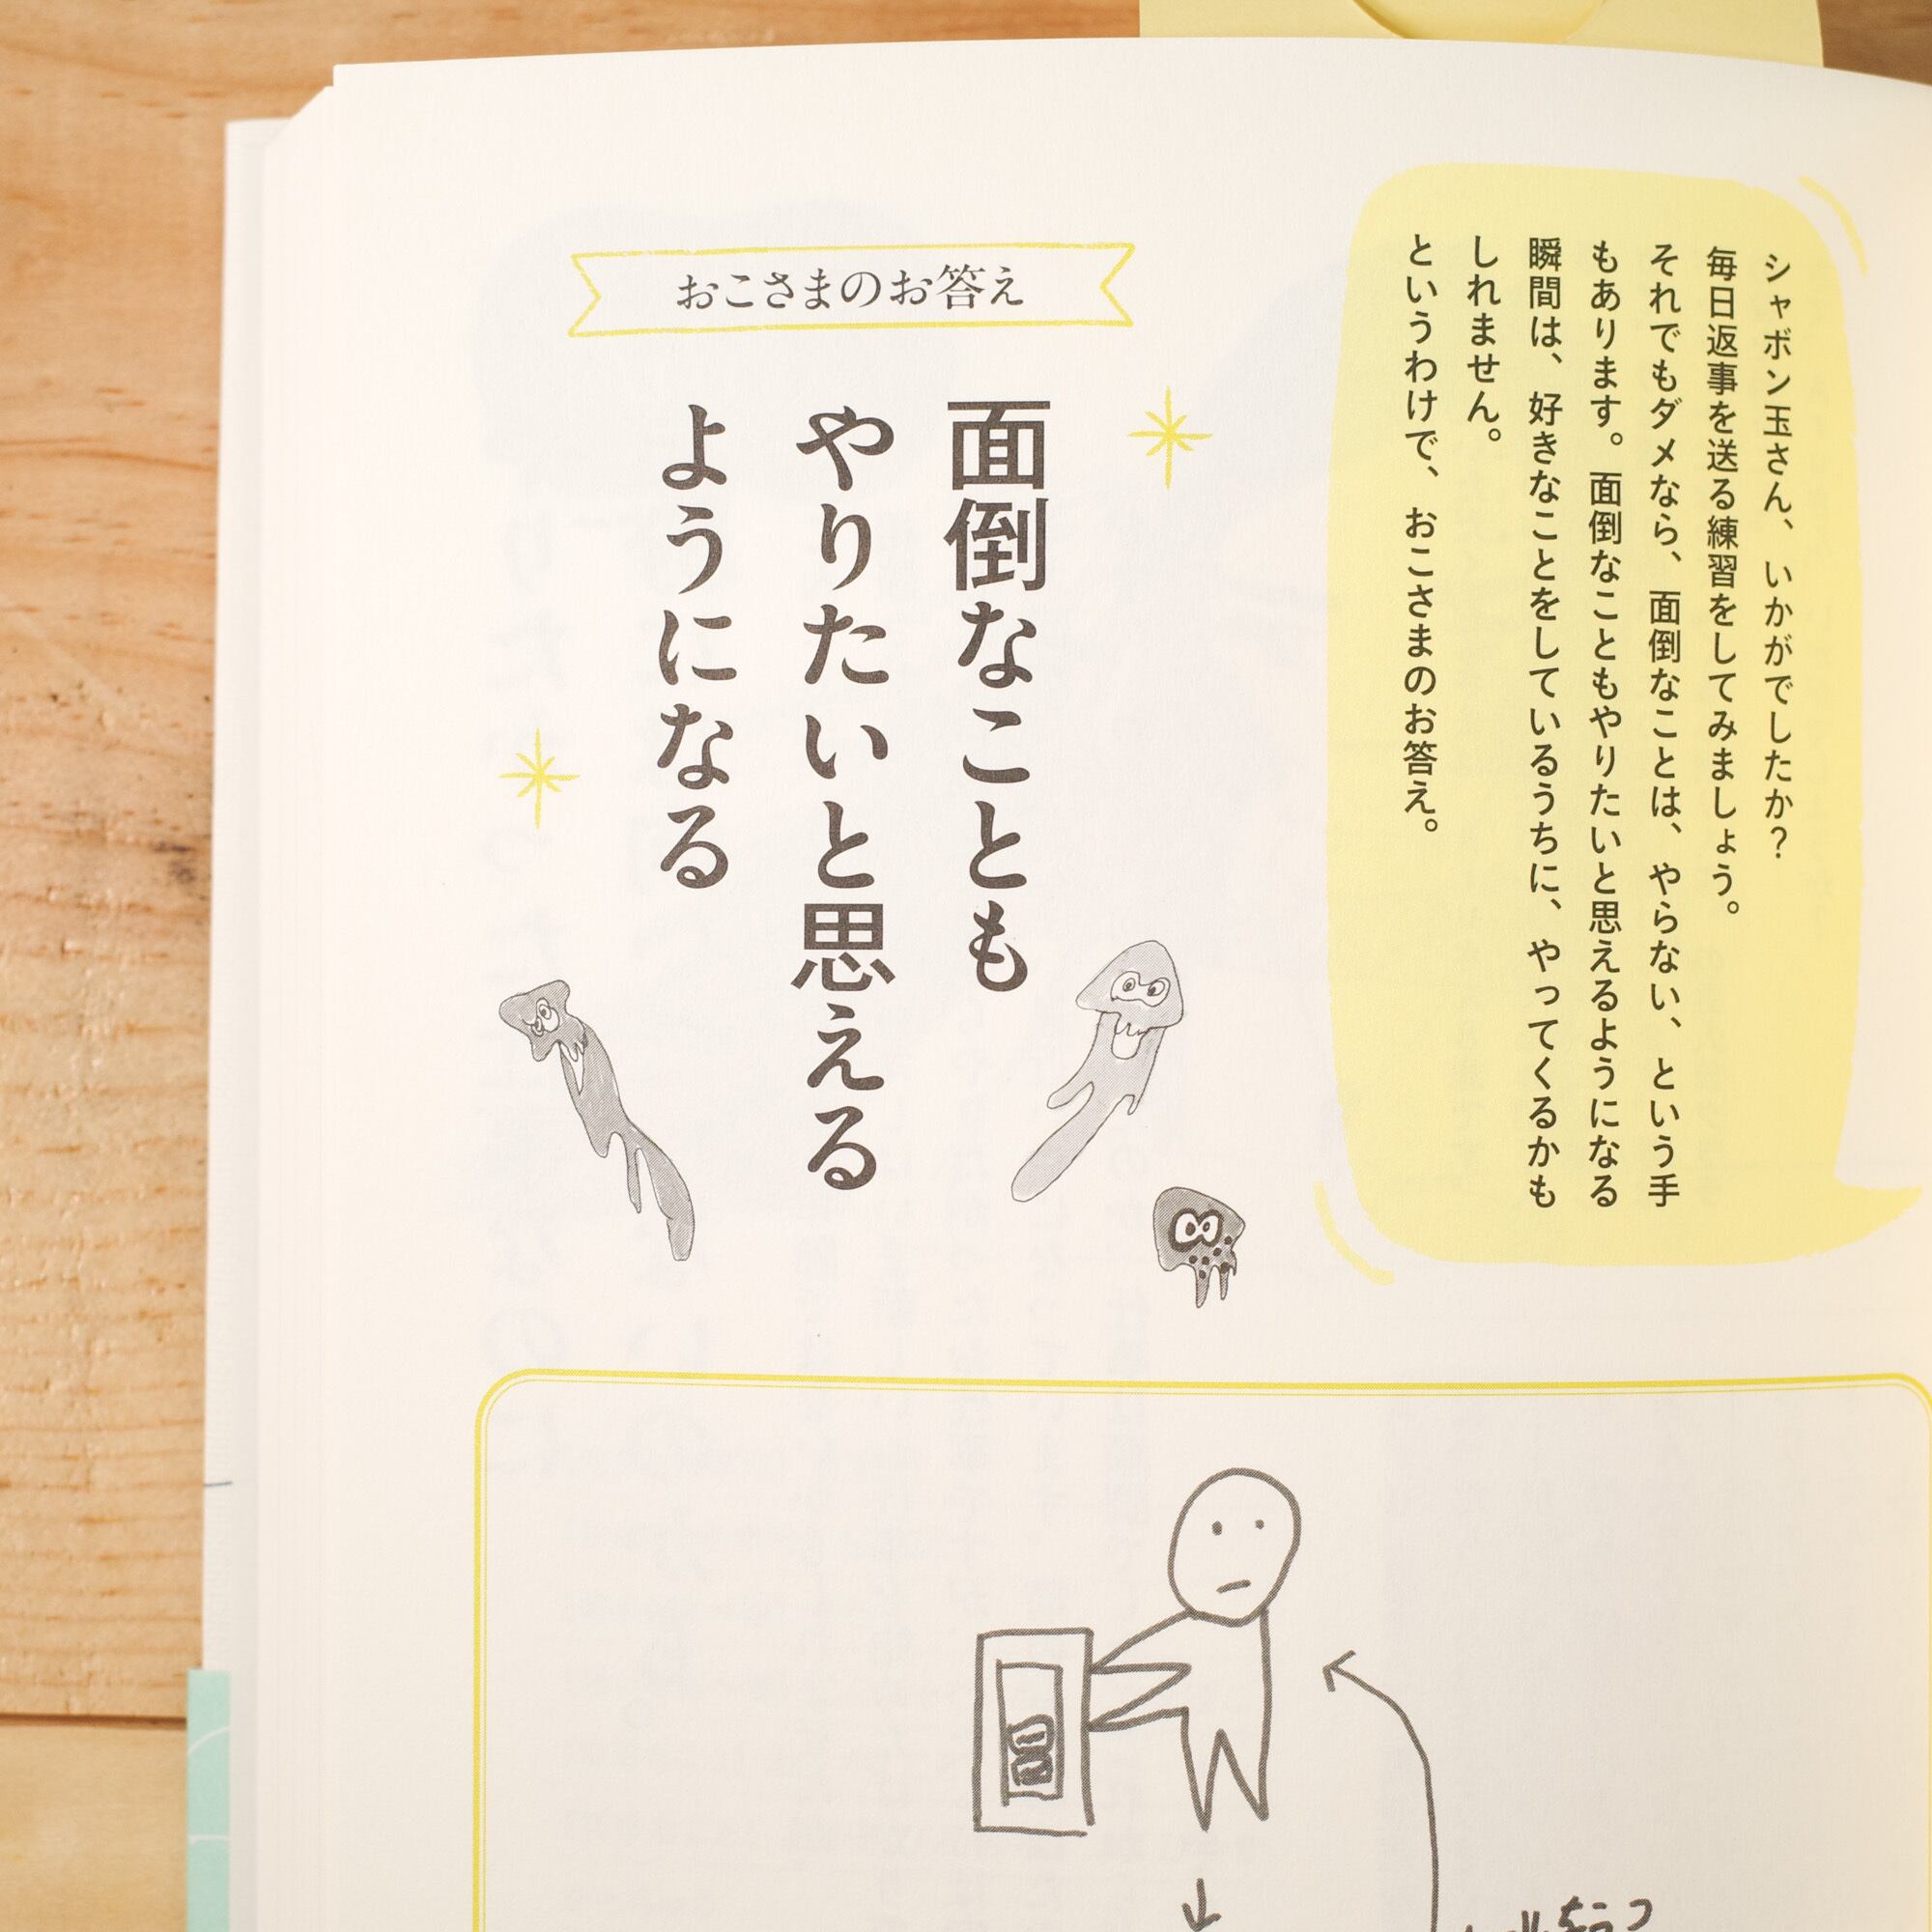 シャボン玉さん、いかがでしたか？
毎日返事を送る練習をしてみましょう。
それでもダメなら、面倒なことは、やらない、という手
もあります。面倒なこともやりたいと思えるようになる
瞬間は、好きなことをしているうちに、やってくるかも
しれません。
というわけで、おこさまのお答え。
おこさまのお答え
面倒なことも
やりたいと思える
ようになる